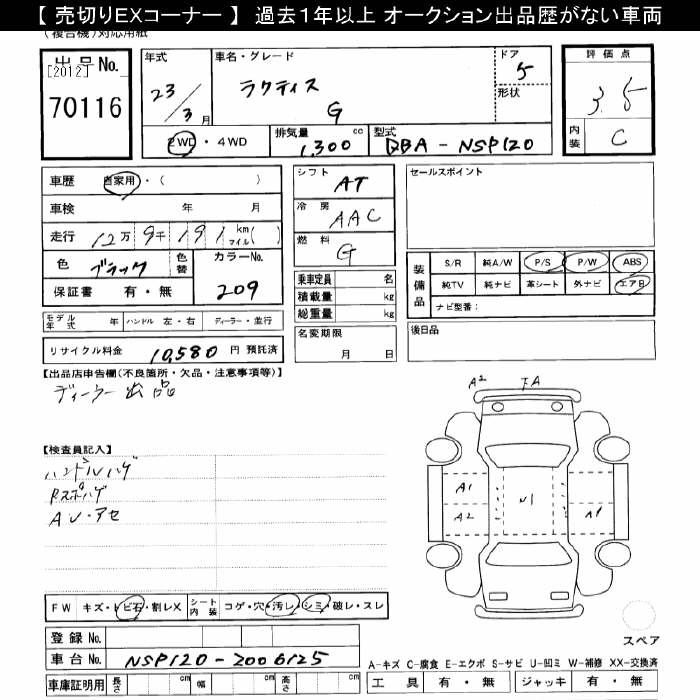 【 売切りEXコーナー 】 過去1年以上 オークション出品歴がない車両
(複合機)対応用紙
出品 No.
[2012]
70116
年式
23/3月
車名・グレード
ラクティス
G
ドア
5
形状
評価点
3.5
内装
C
2WD・4WD
排気量
1,300 cc
型式
DBA-NSP120
車歴 自家用・( )
車検 年 月
走行 12万 9千 191 km マイル( )
色 ブラック
色替
カラーNo.
209
保証書 有・無
シフト
AT
冷房
AAC
燃料
G
乗車定員 名
積載量 kg
総重量 kg
名変期限
月 日
セールスポイント
装備品
S/R 純A/W P/S P/W ABS
純TV 純ナビ 革シート 外ナビ エアB
ナビ型番:
後日品
モデル年式 年 ハンドル 左・右 ディーラー・並行
リサイクル料金 10,580 円 預託済
【出品店申告欄(不良箇所・欠品・注意事項等)】
ディーラー出品
【検査員記入】
ハンドルハゲ
Rスポハゲ
AU・アセ
A2
A1
A2
U1
A1
FW キズ・トビ石・割レX
シート内装 コゲ・穴・汚レ・シミ・破レ・スレ
登録 No.
車台 No. NSP120-2006125
車庫証明用 長さ cm 幅 cm 高さ cm
スペア
A-キズ C-腐食 E-エクボ S-サビ U-凹ミ W-補修 XX-交換済
工具 有・無 ジャッキ 有・無